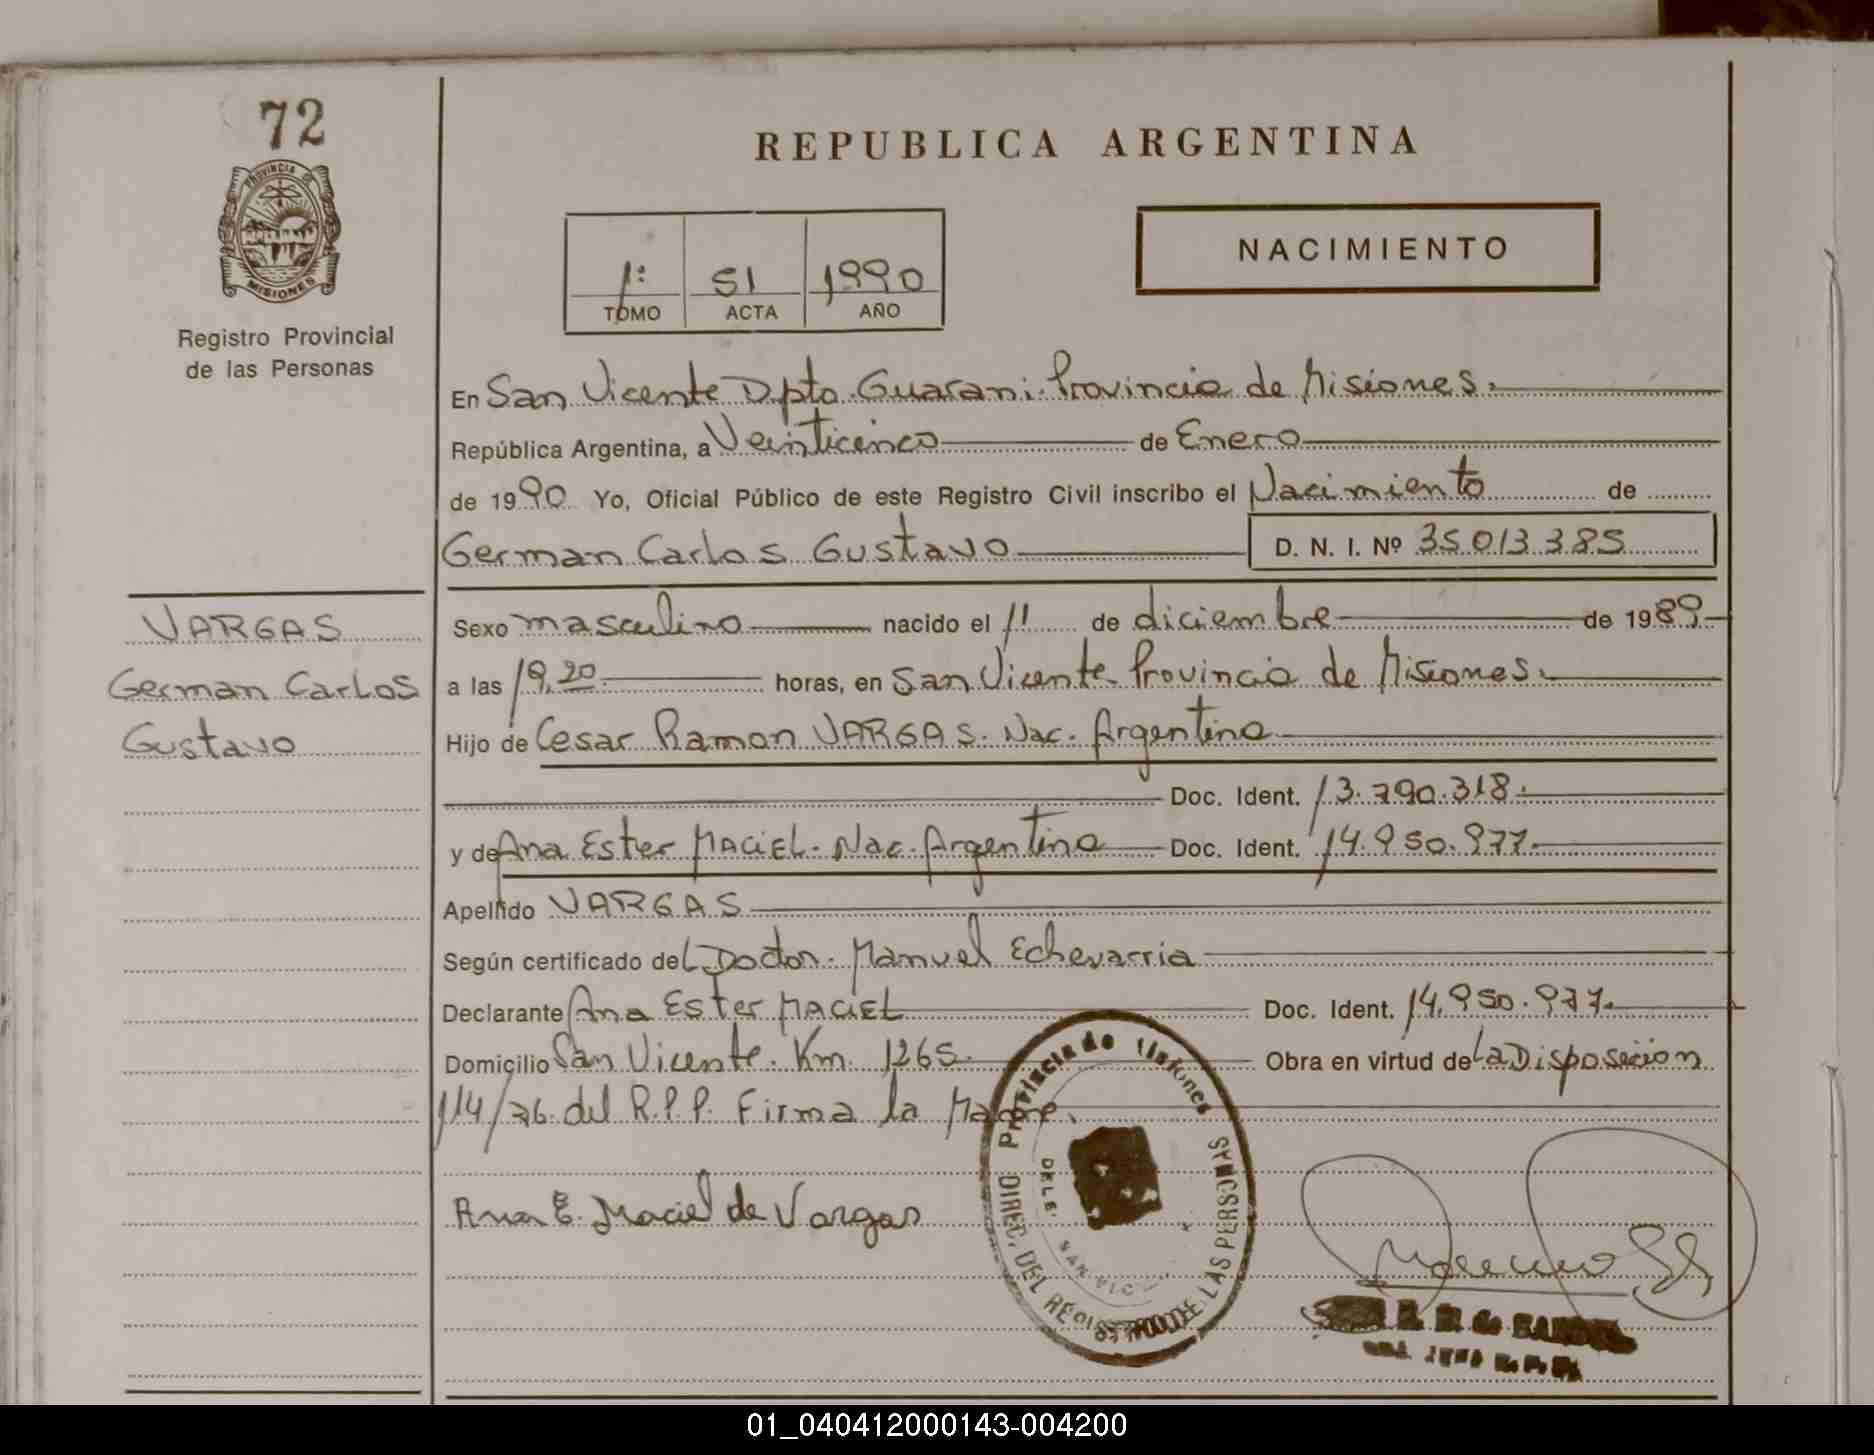 72
PROVINCIA DE
MISIONES
Registro Provincial
de las Personas
REPUBLICA ARGENTINA
NACIMIENTO
1º 51 1990
TOMO ACTA AÑO
En San Vicente Dpto. Guarani. Provincia de Misiones.
República Argentina, a Veinticinco de Enero
de 1990 Yo, Oficial Público de este Registro Civil inscribo el Nacimiento de
German Carlos Gustavo D. N. I. Nº 35.013.385
VARGAS
German Carlos
Gustavo
Sexo masculino nacido el 11 de diciembre de 1989
a las 19,20 horas, en San Vicente Provincia de Misiones.
Hijo de Cesar Ramon VARGAS. Nac. Argentina
Doc. Ident. 13.790.318.
y de Ana Ester MACIEL. Nac. Argentina Doc. Ident. 14.950.977.
Apellido VARGAS
Según certificado del Doctor. Manuel Echevarria
Declarante Ana Ester MACIEL Doc. Ident. 14.950.977.
Domicilio San Vicente. Km. 1265. Obra en virtud de la Disposicion
114/76 del R.P.P. Firma la Madre.
Ana E. Maciel de Vargas
Provincia de Misiones
DIREC. DEL REGIST. DE LAS PERSONAS
01_040412000143-004200